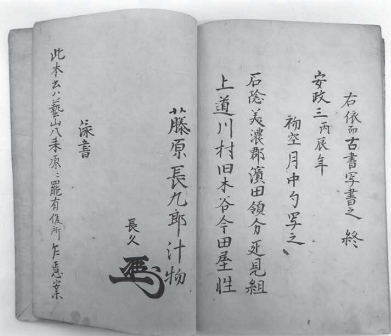 右依而古書写書之 終
安政三丙辰年
初空月中勺写之
石陰美濃郡濱田領分疋見組
上道川村旧木谷今田屋性
藤原長九郎汁物
長久
泳書
此本出ハ藝山八禾原ニ罷有候所乍悪業